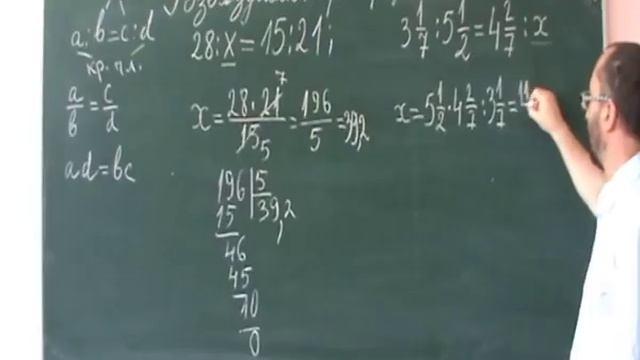 a:b=c:d
кр. чл.
a/b = c/d
ad=bc
28:x=15:21;
x = 28·21/15 = 196/5 = 39,2
7
5
196 | 5
15 | 39,2
46
45
10
0
3 1/7 : 5 1/2 = 4 2/7 : x
x = 5 1/2 · 4 2/7 : 3 1/7 = 11